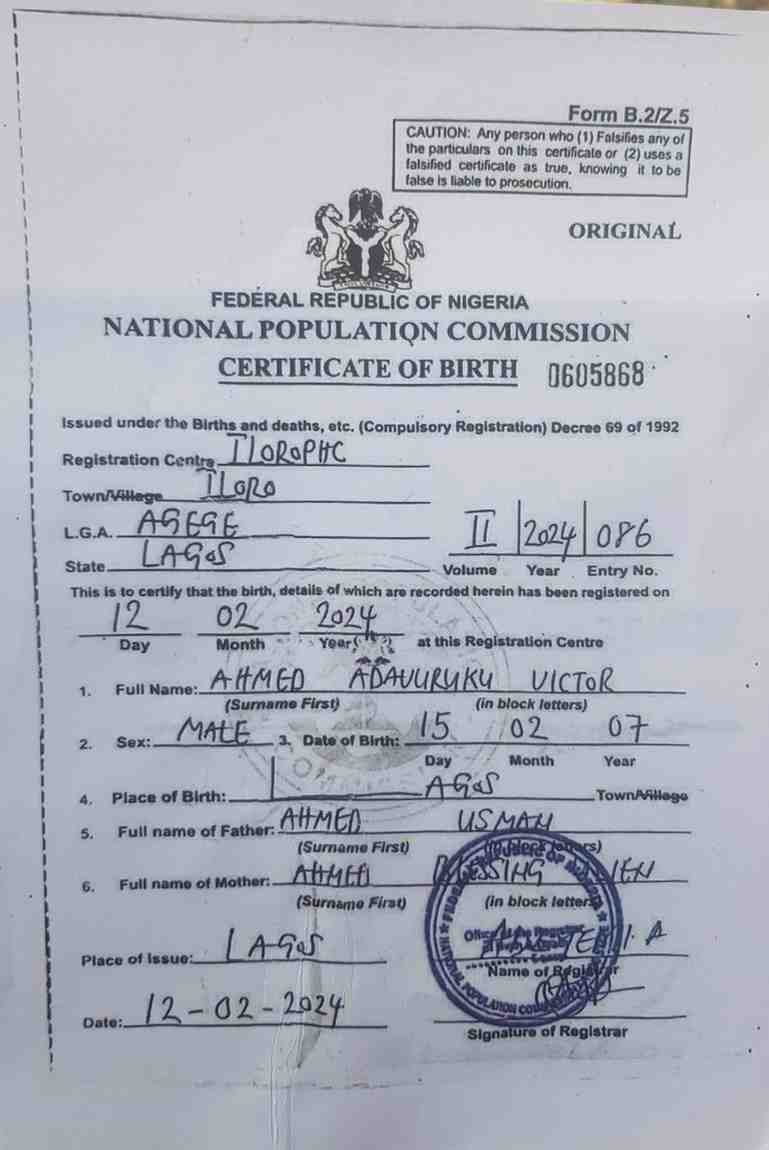 Form B.2/Z.5
CAUTION: Any person who (1) Falsifies any of
the particulars on this certificate or (2) uses a
falsified certificate as true, knowing it to be
false is liable to prosecution.
ORIGINAL
FEDERAL REPUBLIC OF NIGERIA
NATIONAL POPULATION COMMISSION
CERTIFICATE OF BIRTH 0605868
Issued under the Births and deaths, etc. (Compulsory Registration) Decree 69 of 1992
Registration Centre ILOROPHC
Town/Village ILORO
L.G.A. AGEGE
State LAGOS
II 2024 086
Volume Year Entry No.
This is to certify that the birth, details of which are recorded herein has been registered on
12 02 2024
Day Month Year at this Registration Centre
1. Full Name: AHMED ADAVURUKU VICTOR
(Surname First) (in block letters)
2. Sex: MALE 3. Date of Birth: 15 02 07
Day Month Year
4. Place of Birth: LAGOS Town/Village
5. Full name of Father: AHMED USMAN
(Surname First) (in block letters)
6. Full name of Mother: AHMED BLESSING
(Surname First) (in block letters)
Place of Issue: LAGOS
Name of Registrar
Date: 12-02-2024
Signature of Registrar
NATIONAL POPULATION COMMISSION